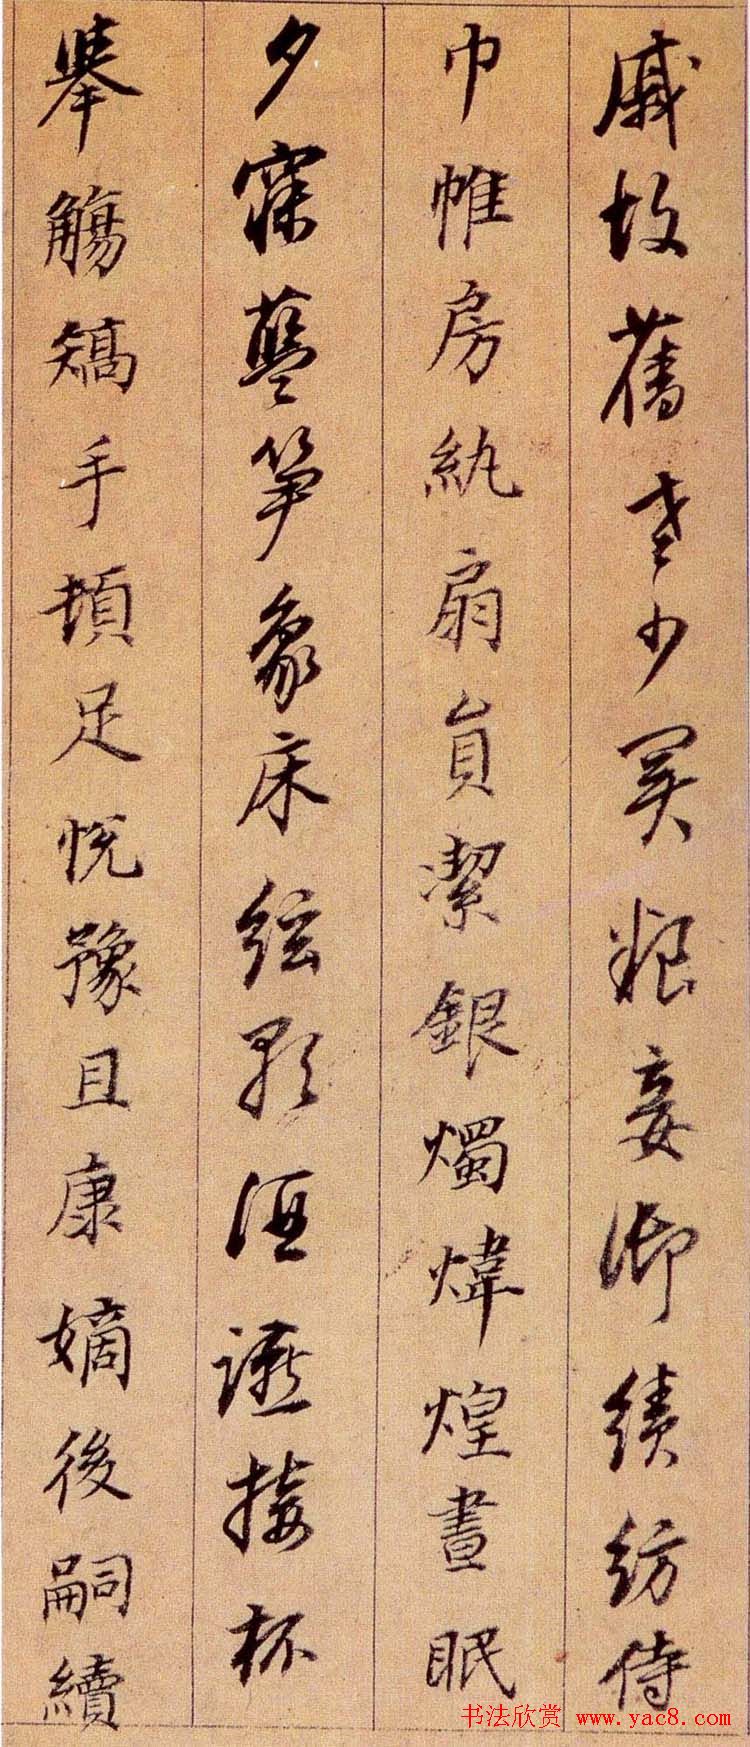 戚故舊老少異粮妾御績紡侍
巾帷房紈扇員潔銀燭煒煌晝眠
夕寐藍笋象床弦歌酒讌接杯
舉觴矯手頓足悅豫且康嫡後嗣續
书法欣赏 www.yac8.com